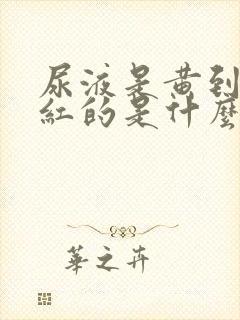 尿液是黄到
紅的是什麼
華之卉